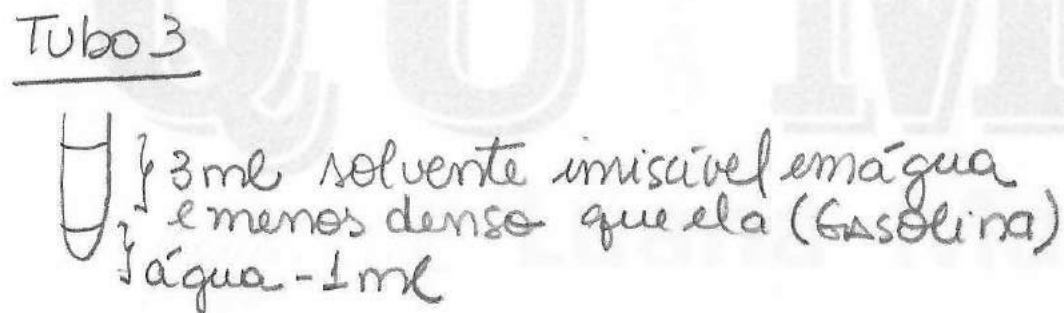 Tubo 3
3ml solvente imiscível em água
e menos denso que ela (GASolina)
água - 1 ml